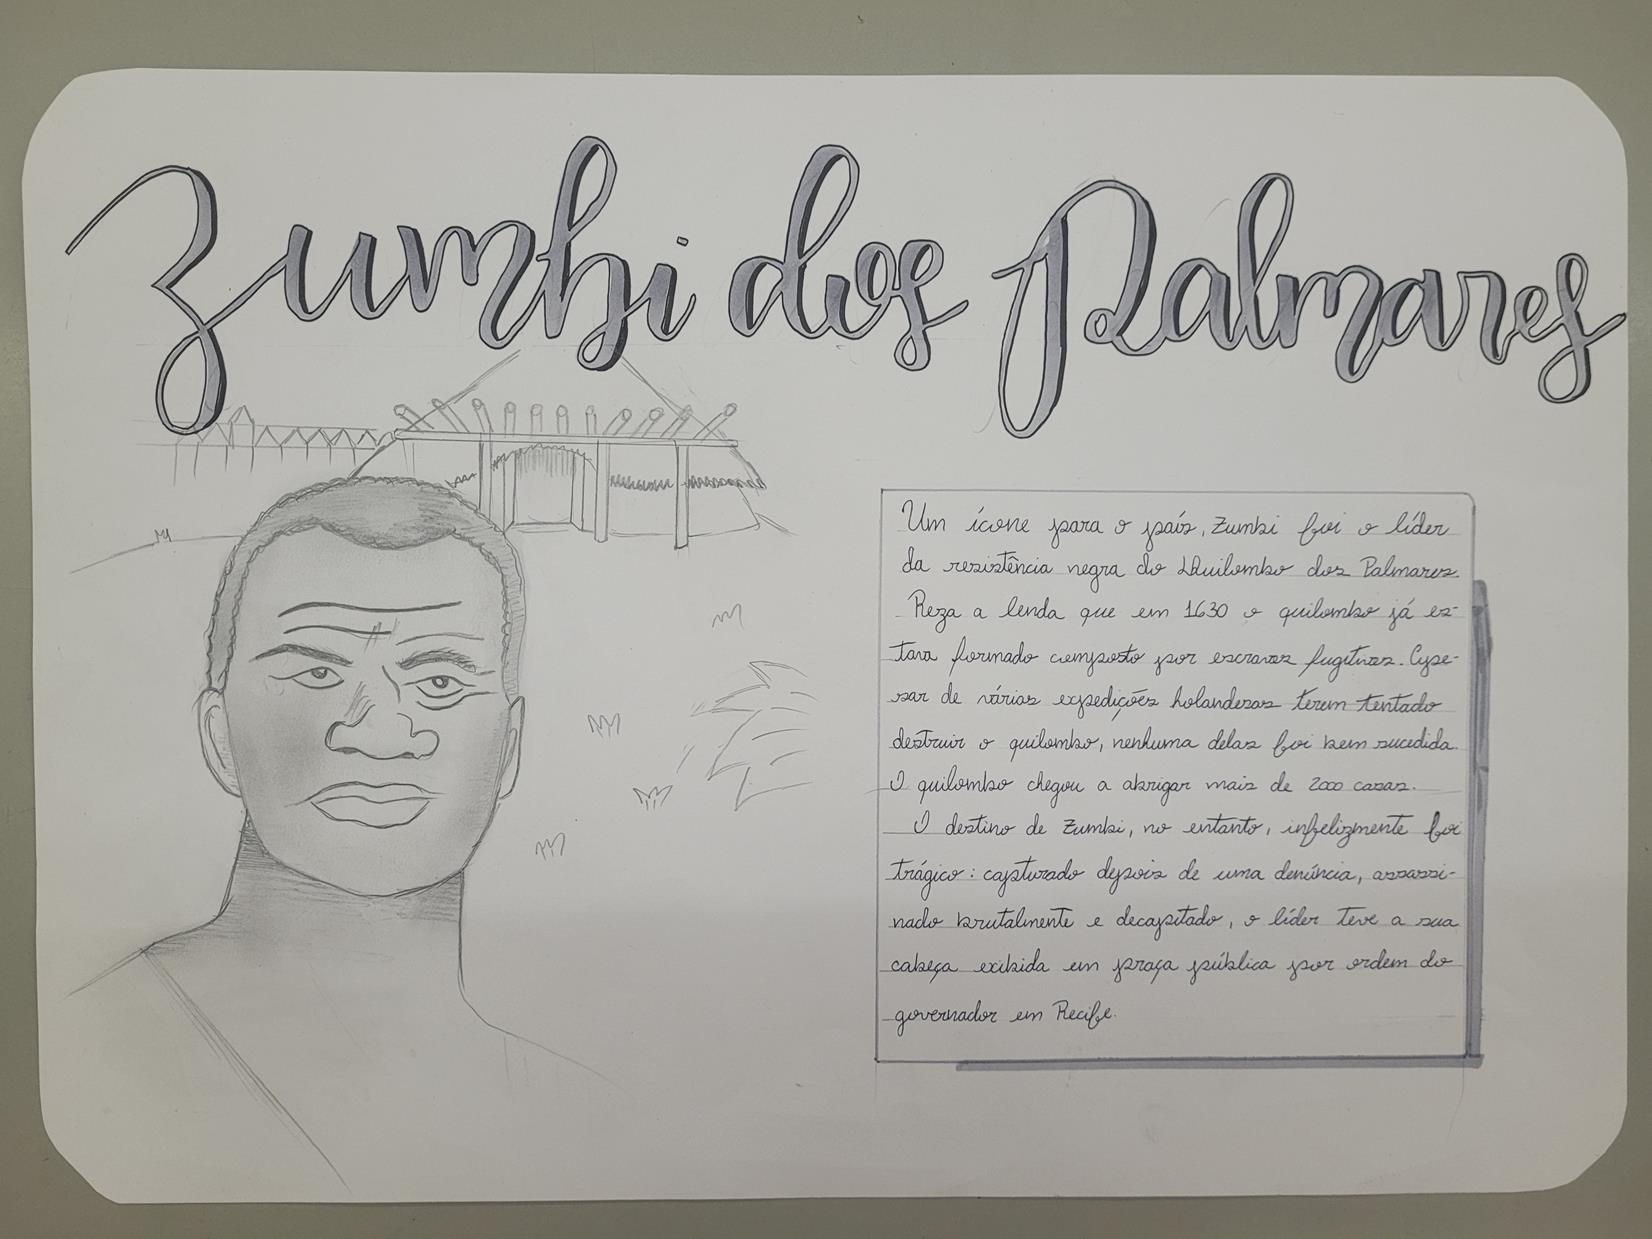 Zumbi dos Palmares
Um ícone para o país, Zumbi foi o líder
da resistência negra do Quilombo dos Palmares
Reza a lenda que em 1630 o quilombo já es-
tava formado composto por escravos fugitivos. Ape-
sar de várias expedições holandesas terem tentado
destruir o quilombo, nenhuma delas foi bem sucedida.
O quilombo chegou a abrigar mais de 2000 casas.
O destino de Zumbi, no entanto, infelizmente foi
trágico: capturado depois de uma denúncia, assassi-
nado brutalmente e decapitado, o líder teve a sua
cabeça exibida em praça pública por ordem do
governador em Recife.